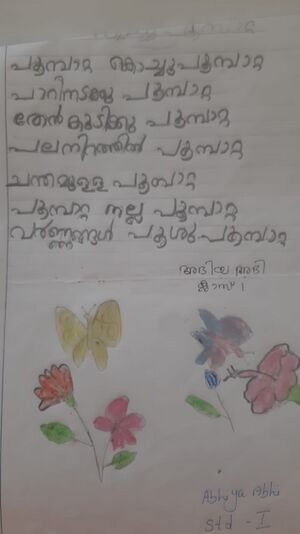 പൂമ്പാറ്റ കൊച്ചുപൂമ്പാറ്റ
പാറിനടക്കു പൂമ്പാറ്റ
തേൻകുടിക്കു പൂമ്പാറ്റ
പലനിറത്തിൽ പൂമ്പാറ്റ
ചന്തമുള്ള പൂമ്പാറ്റ
പൂമ്പാറ്റ നല്ല പൂമ്പാറ്റ
വർണ്ണങ്ങൾ പൂശുപൂമ്പാറ്റ
അഭിയ അഭി
ക്ലാസ് 1
Abhiya Abhi
Std - I